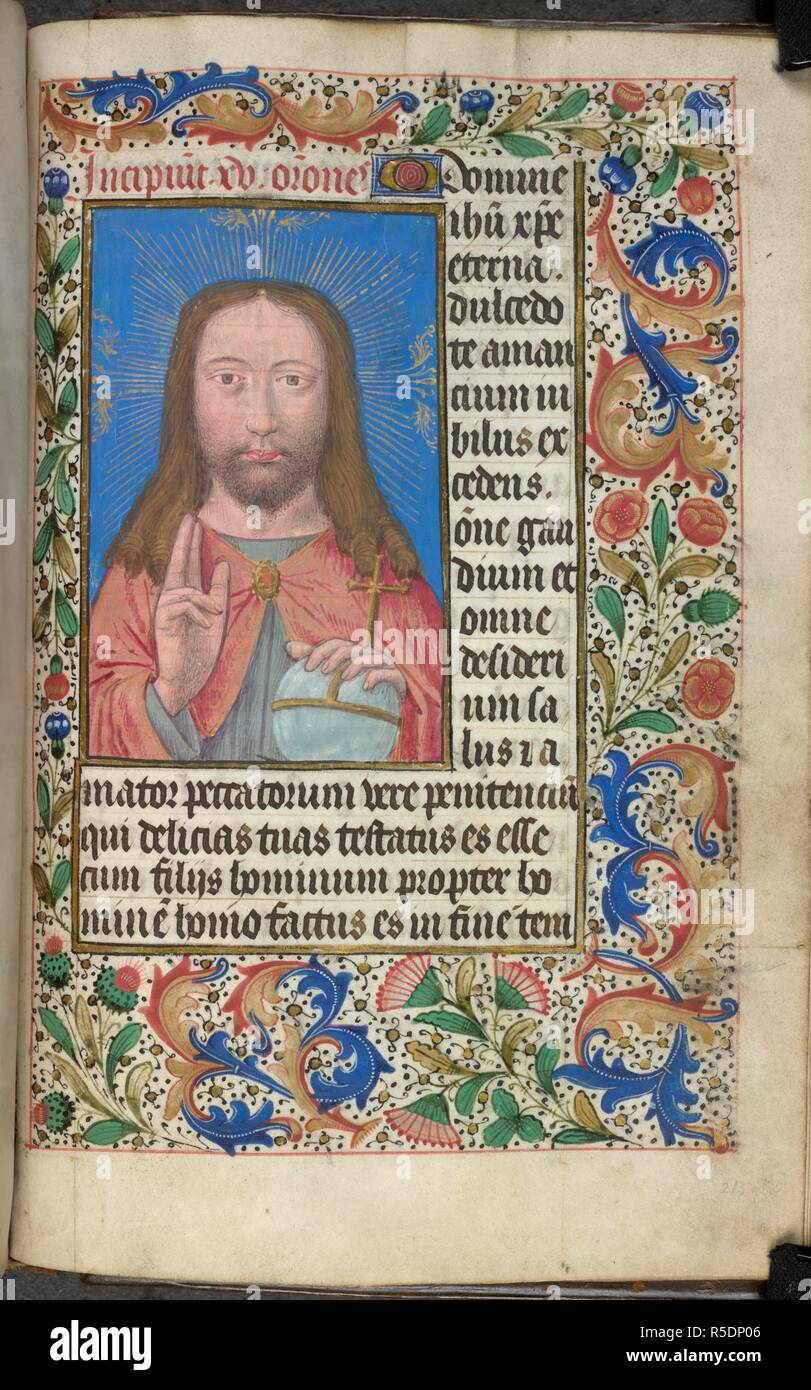 Incipiūt. xv. or̄one
O Domine
ihū xp̄e
eterna.
dulcedo
te aman
cium iu
bilus ex
cedens.
ōne gau
dium et
omne
desideri
um sa
lus ⁊ a
mator peccatorum vere penitenciū
qui delicias tuas testatus es esse
cum filijs hominum propter ho
minē homo factus es in fine tem
213
alamy
Image ID: R5DP06
www.alamy.com